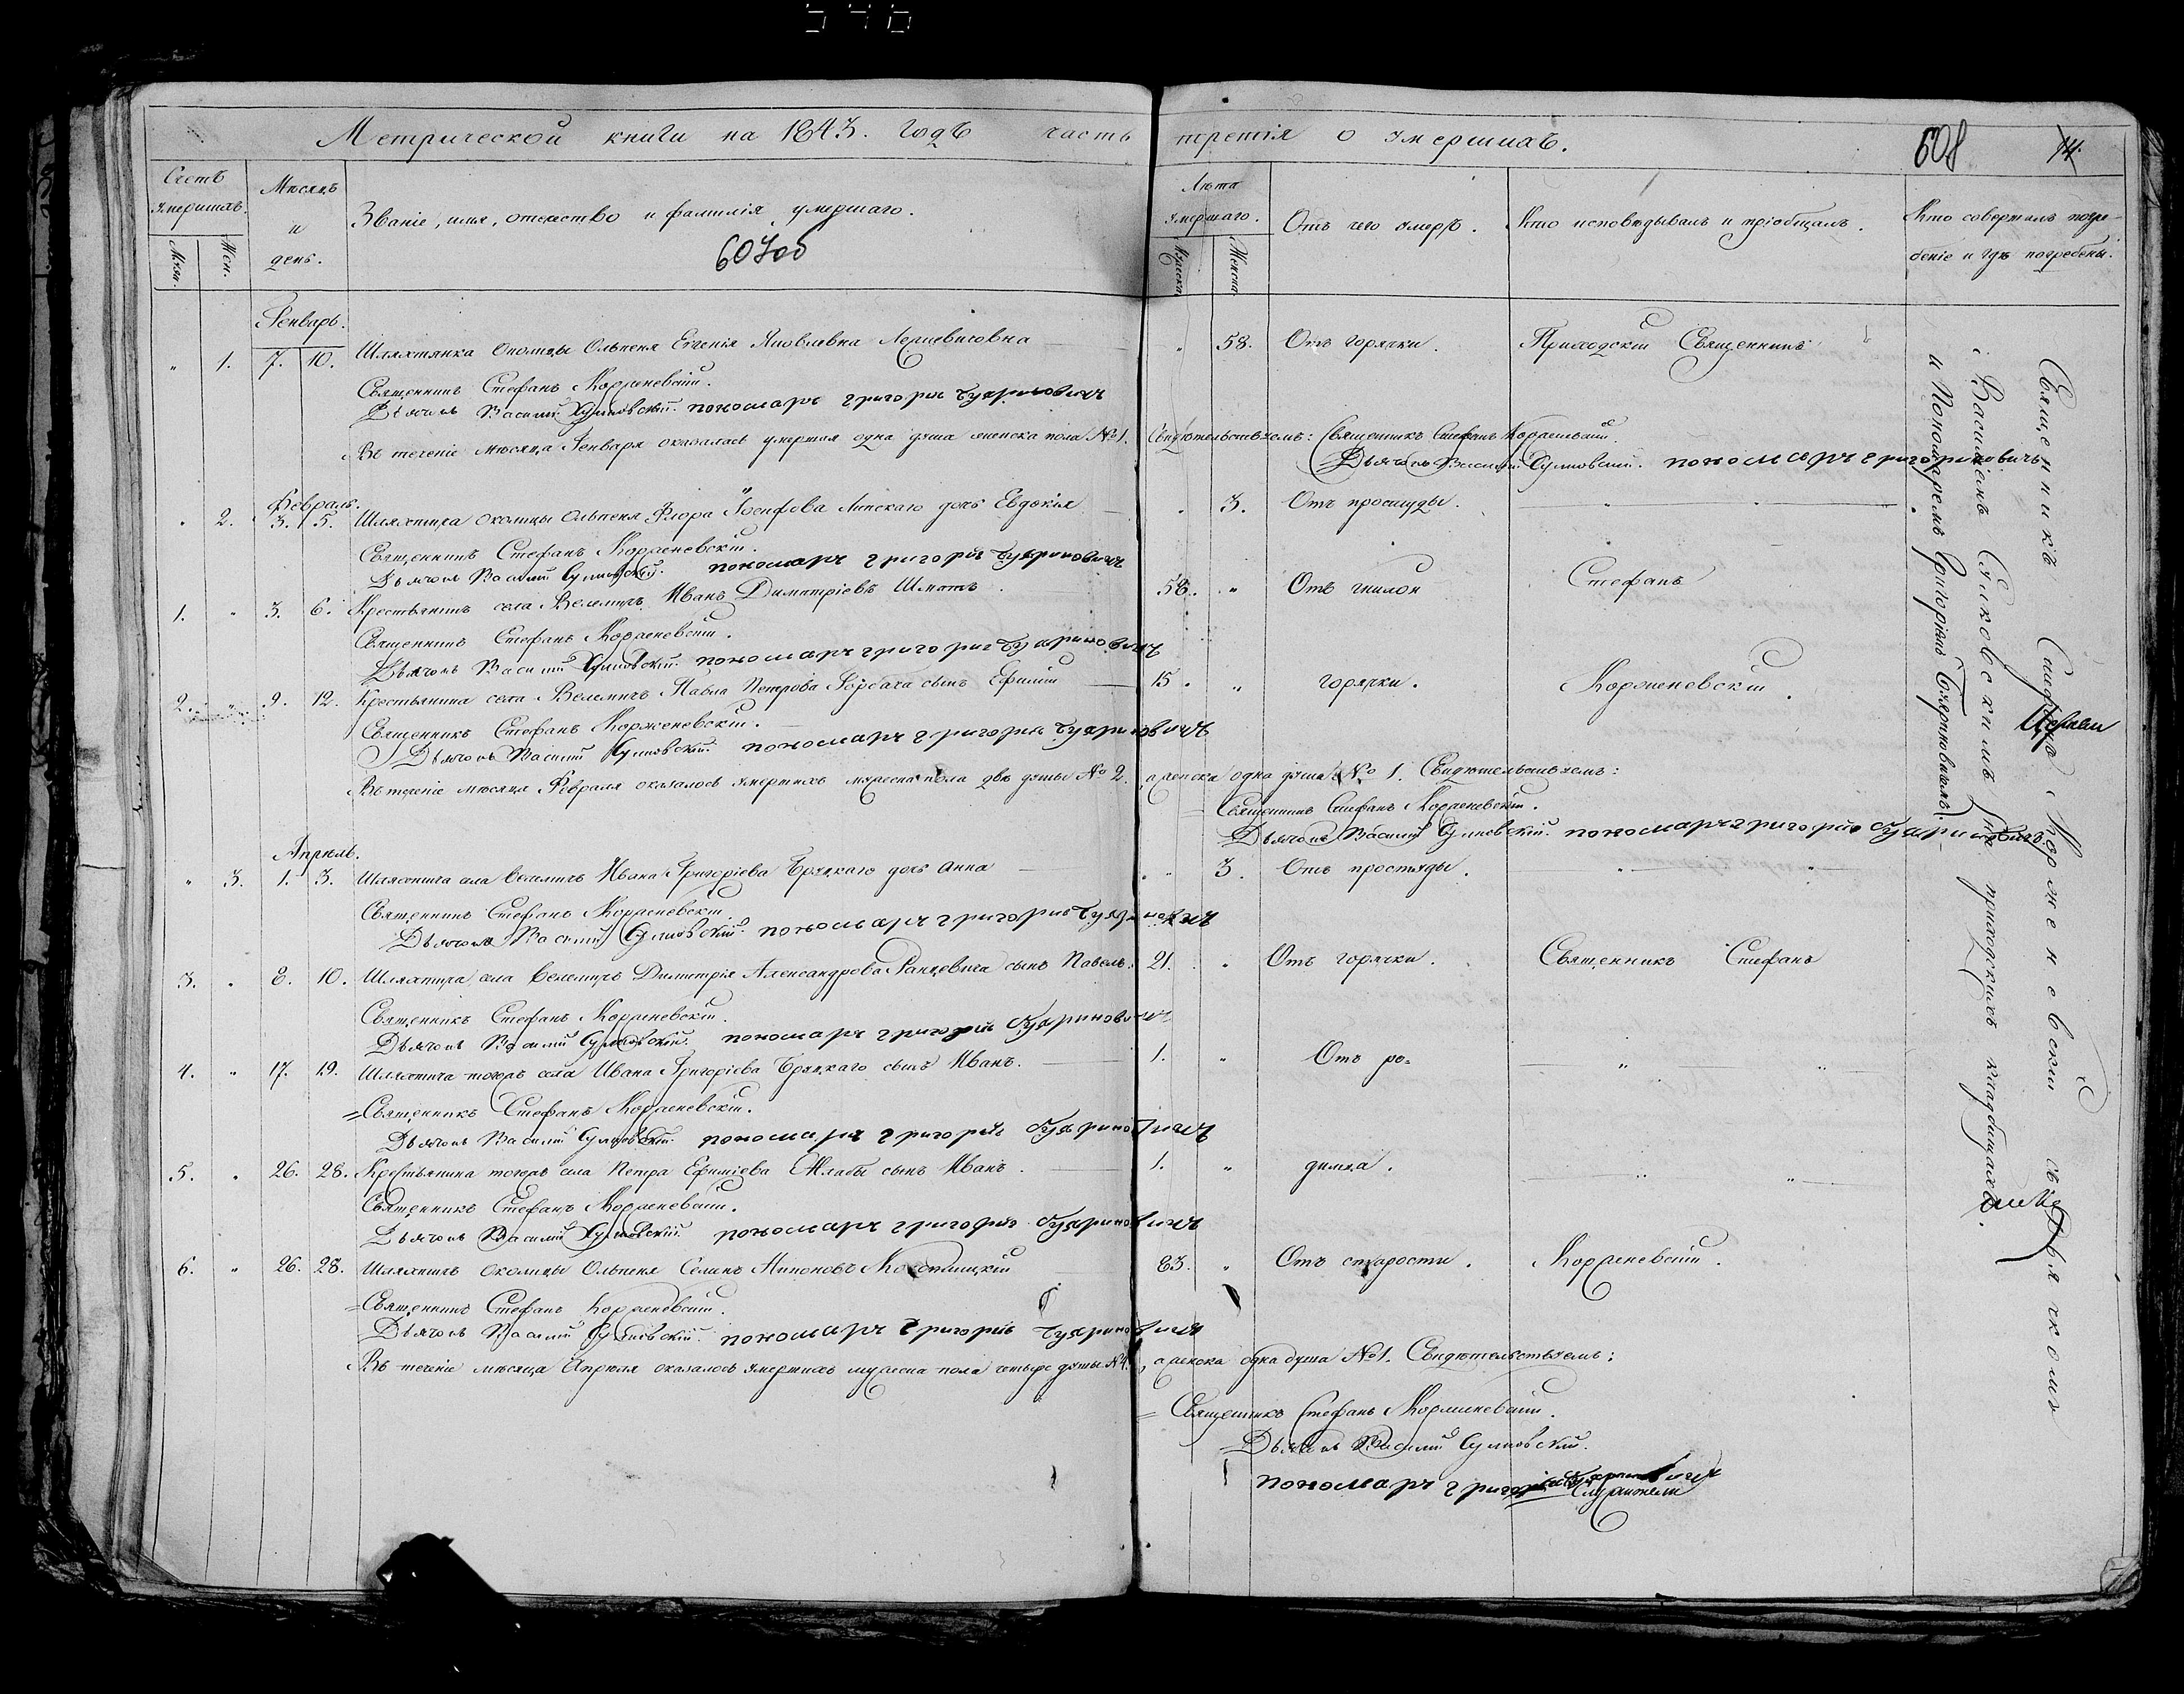 546
Метрической книги на 1843. годъ часть третія о умершихъ.
608
14.
Счетъ умершихъ.
Муж.
Жен.
Мѣсяцъ и день.
Званіе, имя, отечество и фамилія умершаго.
607об
Лѣта умершаго.
Мужеска
Женска
Отъ чего умеръ.
Кто исповѣдывалъ и пріобщалъ.
Кто совершалъ погребеніе и гдѣ погребены.
Генварь.
" 1. 7. 10. Шляхтянка Околицы Ольпеня Евгенія Яковлевна " 58. Отъ горячки. Приходскій Священникъ
Священникъ Стефанъ Корженевскій.
Дьячокъ Василій Сулковскій. пономарь григорій Буяриновичъ
Въ теченіе мѣсяца Генваря оказалась умершая одна душа женска пола №1. Свидѣтельствуемъ: Священникъ Стефанъ Корженевскій.
Дьячокъ Василій Сулковскій. пономарь
Февраль.
" 2. 3. 5. Шляхтича околицы Ольпеня Флора Іосифова Липскаго дочь Евдокія " 3. Отъ простуды. " "
Священникъ Стефанъ Корженевскій.
Дьячокъ Василій Сулковскій. пономарь григорій Буяриновичъ
1. " 3. 6. Крестьянинъ села Велемичъ Иванъ Димитріевъ Шмотъ. 56. " Отъ гнилой Стефанъ
Священникъ Стефанъ Корженевскій.
Дьячокъ Василій Сулковскій. пономарь григорій Буяриновичъ
2. " 9. 12. Крестьянина села Велемичъ Павла Петрова Горбаха сынъ Ефимій 15. " горячки. Корженевскій.
Священникъ Стефанъ Корженевскій.
Дьячокъ Василій Сулковскій. пономарь григорій Буяриновичъ
Въ теченіе мѣсяца Февраля оказалось умершихъ мужеска пола двѣ души № 2. а женска одна душа № 1. Свидѣтельствуемъ:
Священникъ Стефанъ Корженевскій.
Дьячокъ Василій Сулковскій. пономарь григорій Буяриновичъ
Апрѣль.
" 3. 1. 3. Шляхтича села Велемичъ Ивана Григоріева Бруцкаго дочь Анна " 3. Отъ простуды. " "
Священникъ Стефанъ Корженевскій.
Дьячокъ Василій Сулковскій. пономарь григорій Буяриновичъ
3. " 8. 10. Шляхтича села Велемичъ Димитрія Александрова Ранцевича сынъ Павелъ. 21. " Отъ горячки. Священникъ Стефанъ
Священникъ Стефанъ Корженевскій.
Дьячокъ Василій Сулковскій. пономарь григорій Буяриновичъ
4. " 17. 19. Шляхтича тогожъ села Ивана Григоріева Бруцкаго сынъ Иванъ. 1. " Отъ ро= " "
Священникъ Стефанъ Корженевскій.
Дьячокъ Василій Сулковскій. пономарь григорій Буяриновичъ
5. " 26. 28. Крестьянина тогожъ села Петра Ефиміева сынъ Иванъ. 1. " димца. " "
Священникъ Стефанъ Корженевскій.
Дьячокъ Василій Сулковскій. пономарь григорій Буяриновичъ
6. " 26. 28. Шляхтичъ околицы Ольпеня 83. " Отъ старости. Корженевскій.
Священникъ Стефанъ Корженевскій.
Дьячокъ Василій Сулковскій. пономарь григорій Буяриновичъ
Въ теченіе мѣсяца Апрѣля оказалось умершихъ мужеска пола четыре души №4. а женска одна душа №1. Свидѣтельствуемъ:
Священникъ Стефанъ Корженевскій.
Дьячокъ Василій Сулковскій.
пономарь григорій Буяриновичъ
Служители
Священникъ Стефанъ Корженевскій съ Дьячкомъ
Василіемъ Сулковскимъ на приходскихъ кладбищахъ.
и Пономаремъ Григоріемъ Буяриновичемъ.
Церкви